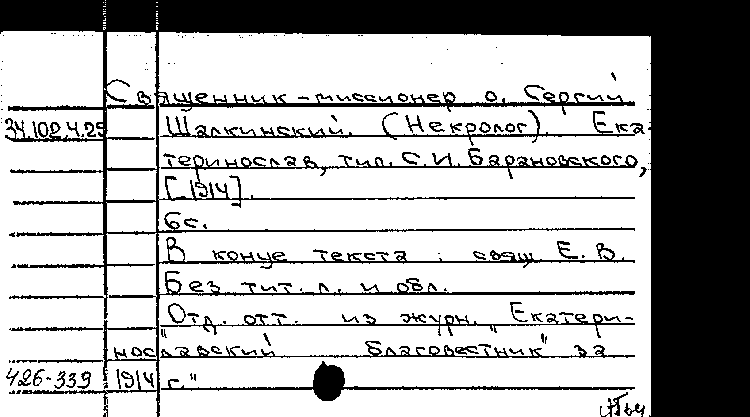 Священник-миссионер о. Сергий
34.102.4.25 Шалкинский. (Некролог). Ека-
теринослав, тип. С.И. Барановского,
[1914].
6с.
В конце текста: свящ Е. В.
Без тит. л. и обл.
Отд. отт. из журн. „Екатери-
нославский благовестник" за
426-339 1914 г."